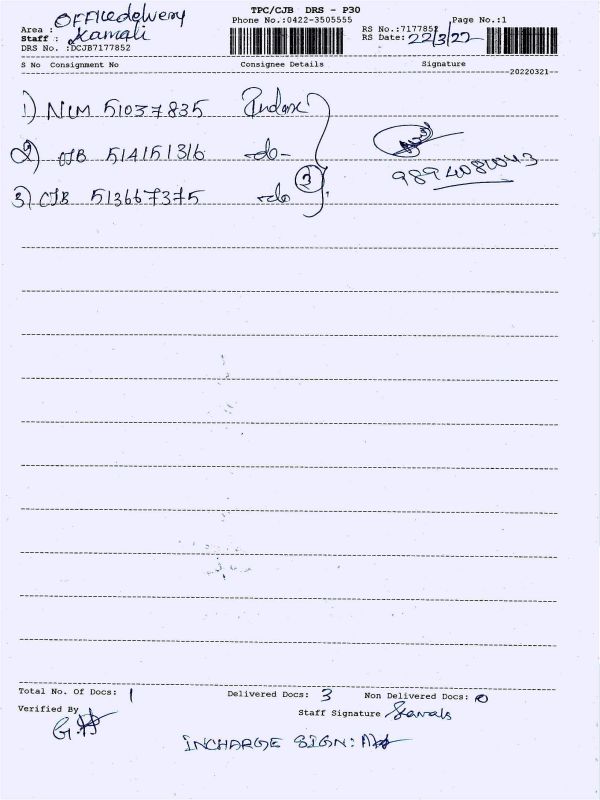 TPC/CJB DRS - P30
OFFICE delivery
Phone No.:0422-3505555
Page No.:1
Area :
RS No.:7177852
Staff : Kamali
RS Date: 22/3/22
DRS No. :DCJB7177852
S No Consignment No Consignee Details Signature
20220321
1) NLM 51037835
2) CJB 514151316 -do-
3) CJB 513667375 -do
3
Total No. Of Docs: 1 Delivered Docs: 3 Non Delivered Docs: 0
Verified By
Staff Signature
INCHARGE SIGN: